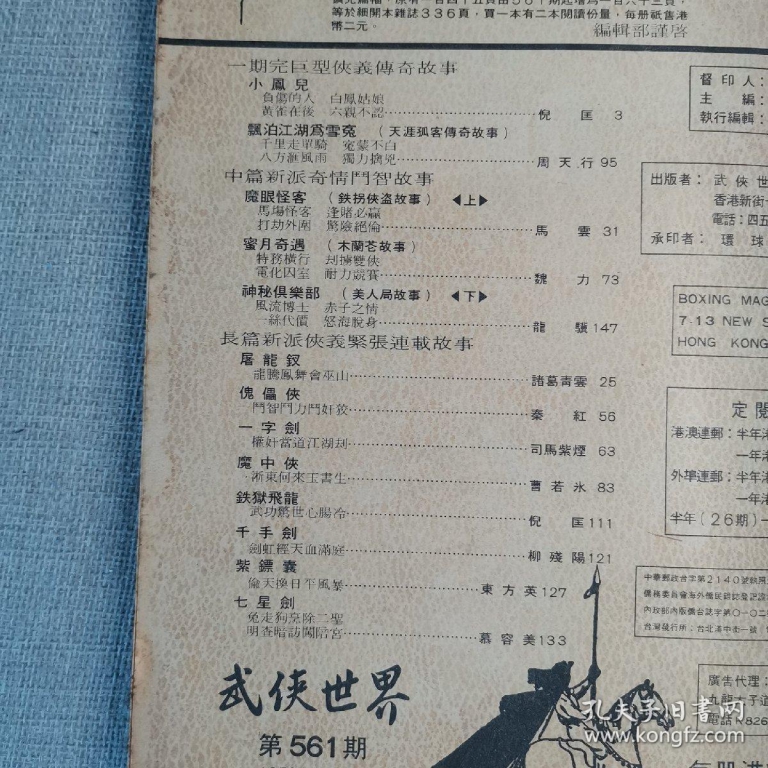 等於細開本雜誌336頁，買一本有二本閱讀份量，每册祇售港
幣二元。
編輯部謹啓
一期完巨型俠義傳奇故事
小鳳兒
負傷的人 白鳳姑娘
黃雀在後 六親不認 倪匡 3
飄泊江湖爲雪寃 （天涯孤客傳奇故事）
千里走單騎 寃蒙不白
八方滙風雨 獨力擒兇 周天行 95
中篇新派奇情鬥智故事
魔眼怪客 （鉄拐俠盜故事） ◀上▶
馬場怪客 逢賭必贏
打劫外圍 驚險絕倫 馬雲 31
蜜月奇遇 （木蘭花故事）
特務橫行 刦擄雙俠
電化囚室 耐力競賽 魏力 73
神秘俱樂部 （美人局故事） ◀下▶
風流博士 赤子之情
一絲代價 怒海脫身 龍驤 147
長篇新派俠義緊張連載故事
屠龍釵
龍騰鳳舞會巫山 諸葛靑雲 25
傀儡俠
鬥智鬥力鬥奸敎 秦紅 56
一字劍
權奸當道江湖刦 司馬紫煙 63
魔中俠
浙東何來玉書生 曹若氷 83
鉄獄飛龍
武功驚世心腸冷 倪匡 111
千手劍
劍虹經天血滿庭 柳殘陽 121
紫鏢囊
偷天換日平風暴 東方英 127
七星劍
兔走狗烹除二聖
明查暗訪闖陰宮 慕容美 133
武俠世界
第561期
督印人：
主編：
執行編輯：
出版者：武俠世
香港新街
電話：四五
承印者：環球
BOXING MAG
7-13 NEW S
HONG KONG
定閱
港澳連郵：半年港
一年港
外埠連郵：半年港
一年港
半年（26期）一
中華郵政台字第2140號執照
僑務委員會海外僑民雜誌登記證
內政部內版僑台誌字第〇一〇二
台灣發行所：台北漢中街一號
廣告代理：
九龍
電話K826
每册港
孔夫子旧书网
kongfz.com